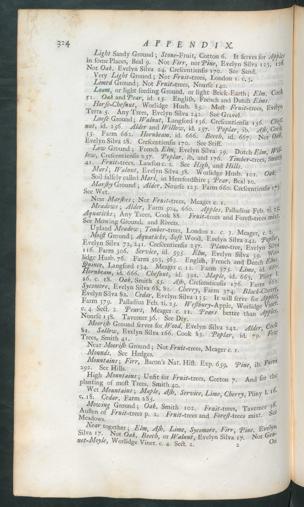 324 APPENDIX.
Light Sandy Ground; Stone-Fruit, Cotton 6. It serves for Apples
in some Places, Beal 9. Not Firr, nor Pine, Evelyn Silva 125, 126.
Not Oak, Evelyn Silva 24. Crescentiensis 170. See Sand.
Very Light Ground; Not Fruit-trees, London 1. c. 5.
Limed Ground; Not Fruit-trees, Nourse 140.
Loam, or light feeding Ground, or light Brick-Earth; Elm, Cook
51. Oak and Pear, id. 15. English, French and Dutch Elms.
Horse-Chesnut, Worlidge Husb. 82. Most Fruit-trees, Evelyn
Terra 5. Any Trees, Evelyn Silva 242. See Gravel.
Loose Ground; Walnut, Langford 136. Crescentiensis 156. Chesnut,
id. 256. Alder and Willow, id. 237. Poplar, ib. Ash, Cook
55. Farm 661. Hornbeam, id. 666. Beech, id. 667. Not Oak,
Evelyn Silva 18. Crescentiensis 170. See Stiff.
Low Ground; French Elm, Evelyn Silva 29. Dutch Elm, Willow,
Crescentiensis 237. Poplar, ib. and 176. Timber-trees, Smith
41. Fruit-trees, Lauson c. 2. See High, and Hills.
Marl; Walnut, Evelyn Silva 58. Worlidge Husb. 102. Oak.
Soil falsely called Marl, in Herefordshire; Pear, Beal 10.
Marshy Ground; Alder, Nourse 123. Farm 660. Crescentiensis
See Wet.
Near Marshes; Not Fruit-trees, Meager c. 1.
Meadows; Alder, Farm 504, 660. Apples, Palladius Feb. ti. 25.
Aquaticks; Any Trees, Cook 88. Fruit-trees and Forest-trees mixt.
See Mowing Ground, and Rivers.
Upland Meadow; Timber-trees, London 2. c. 7. Meager, c. 2.
Moist Ground; Aquaticks, Soft Wood, Evelyn Silva 242. Poplar,
Evelyn Silva 72, 241. Crescentiensis 237. Plane-tree, Evelyn Silva
116. Farm 306. Service, id. 395. Elm, Evelyn Silva 30. Worlidge
Husb. 76. Farm 505, 362. English, French and Dutch Elm,
Langford 124. Meager c. 11. Farm 372. Lime,
Hornbeam, id. 666. Chesnut, id. 331. Maple, id. 665. Pine 1.
16. c. 18. Oak, Smith 55. Ash, Crescentiensis 176. Farm 661.
Sycomore, Evelyn Silva 68, 81. Cherry, Farm 374. Black-Cherry,
Evelyn Silva 82. Cedar, Evelyn Silva 135. It will serve for Apples,
Farm 379. Palladius Feb. ti. 25. Westbury-Apple, Worlidge Vinet.
c. 4. Sect. 2. Pears, Meager c. 11. Pears better than Apples,
Nourse 138. Taverner 36. See Dry.
Moorish Ground serves for Wood, Evelyn Silva 242. Alder, Cook
82. Sallow, Evelyn Silva 266. Cook 83. Poplar, id. 79. Four
Trees, Smith 41.
Near Moorish Ground; Not Fruit-trees, Meager c. 1.
Mounds. See Hedges.
Mountains; Firr, Bacon's Nat. Hist. Exp. 639. Pine, ib. Farm
292. See Hills.
High Mountains; Unfit for Fruit-trees, Cotton 7. And for the
planting of most Trees, Smith 40.
Wet Mountains; Maple, Ash, Service, Lime, Cherry, Pliny l. 16.
c. 18. Cedar, Farm 285.
Mowing Ground; Oak, Smith 102. Fruit-trees, Taverner 36.
Austen of Fruit-trees p. 2. Fruit-trees and Forest-trees mixt. See
Meadows.
Near together; Elm, Ash, Lime, Sycomore, Firr, Pine, Evelyn
Silva 17. Not Oak, Beech, or Walnut, Evelyn Silva 17. Not Gennet-Moyle,
Worlidge Vinet. c. 4. Sect. 2.
2 On